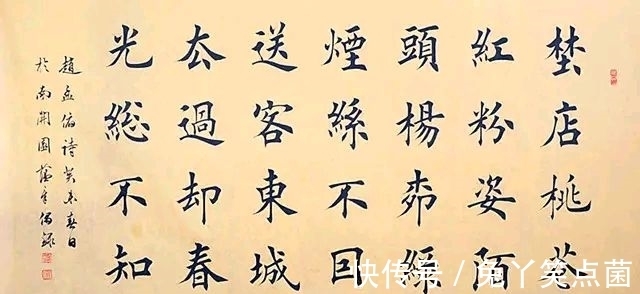 埜店桃花
紅粉姿陌
頭楊柳綠
煙絲不因
送客東城
去過却春
光総不知
趙孟俯詩癸未春日
於南開園
快传号 / 兔丫笑点菌